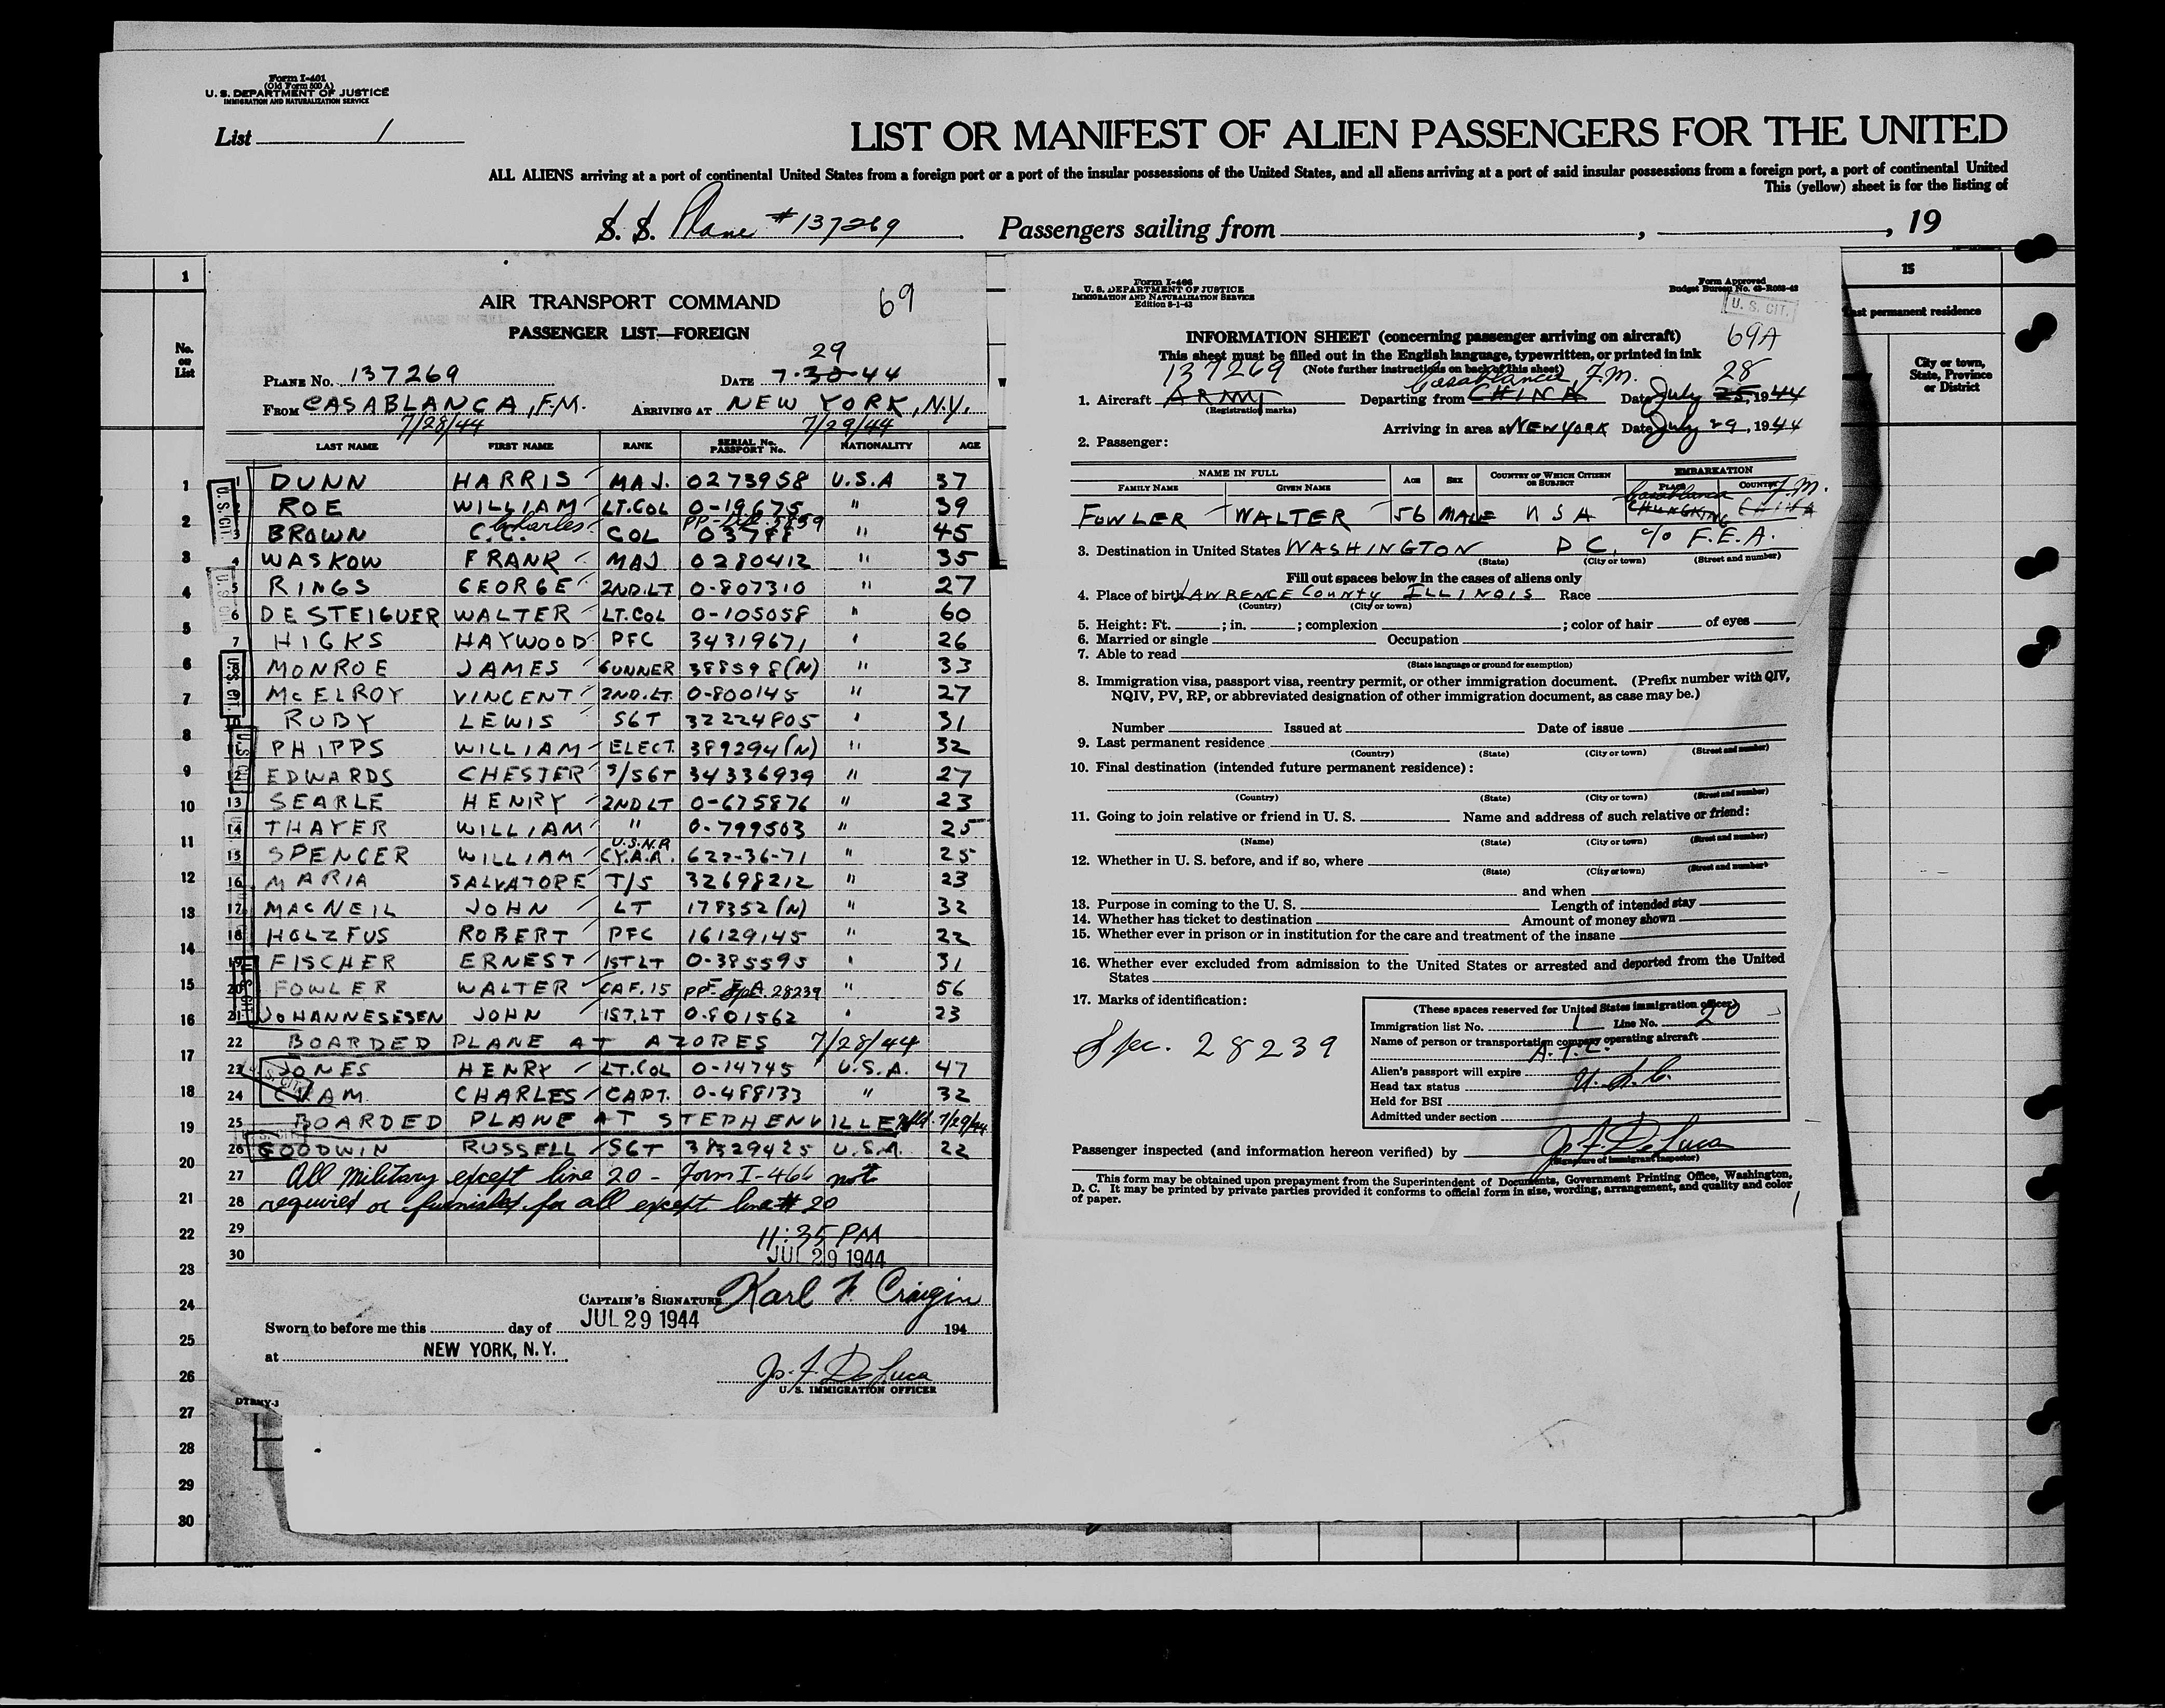 Form I-401
(Old Form 500 A)
U. S. DEPARTMENT OF JUSTICE
IMMIGRATION AND NATURALIZATION SERVICE
List 1
LIST OR MANIFEST OF ALIEN PASSENGERS FOR THE UNITED
ALL ALIENS arriving at a port of continental United States from a foreign port or a port of the insular possessions of the United States, and all aliens arriving at a port of said insular possessions from a foreign port, a port of continental United
This (yellow) sheet is for the listing of
S. S. Plane #137269 Passengers sailing from , , 19
1
No. on List
1
2
3
4
5
6
7
8
9
10
11
12
13
14
15
16
17
18
19
20
21
22
23
24
25
26
27
28
29
30
AIR TRANSPORT COMMAND
69
PASSENGER LIST—FOREIGN
29
PLANE No. 137269 DATE 7-30-44
FROM CASABLANCA, F.M. ARRIVING AT NEW YORK, N.Y.
7/28/44 7/29/44
LAST NAME FIRST NAME RANK SERIAL No. PASSPORT No. NATIONALITY AGE
1 DUNN HARRIS MAJ. 0273958 U.S.A 37
ROE WILLIAM LT.COL 0-19675 " 39
Charles PP- 5859
3 BROWN C.C. COL 03788 " 45
4 WASKOW FRANK MAJ 0280412 " 35
5 RINGS GEORGE 2ND.LT 0-807310 " 27
6 DE STEIGUER WALTER LT.COL 0-105058 " 60
7 HICKS HAYWOOD PFC 34319671 " 26
MONROE JAMES GUNNER 388598(N) " 33
McELROY VINCENT 2ND.LT 0-800145 " 27
RUBY LEWIS SGT 32224805 " 31
PHIPPS WILLIAM ELECT. 389294(N) " 32
12 EDWARDS CHESTER S/SGT 34336939 " 27
13 SEARLE HENRY 2NDLT 0-675876 " 23
14 THAYER WILLIAM " 0-799503 " 25
U.S.N.R
15 SPENCER WILLIAM CY.A.A. 622-36-71 " 25
16 MARIA SALVATORE T/5 32698212 " 23
17 MACNEIL JOHN LT 178352(N) " 32
18 HOLZFUS ROBERT PFC 16129145 " 22
19 FISCHER ERNEST 1STLT 0-385595 " 31
20 FOWLER WALTER CAF.15 F.E.A. PP- Spec. 28239 " 56
21 JOHANNESESEN JOHN 1ST.LT 0-801562 " 23
22 BOARDED PLANE AT AZORES 7/28/44
23 JONES HENRY LT.COL 0-14745 U.S.A. 47
24 CHARLES CAPT. 0-488133 " 32
25 BOARDED PLANE AT STEPHENVILLE Nfld. 7/29/44
26 GOODWIN RUSSELL SGT 38329425 U.S.A. 22
27 All Military except line 20 - Form I-466 not
28 required or furnished for all except line # 20
29 11:35 PM
30 JUL 29 1944
U.S. CIT.
U.S. CIT.
U.S. CIT.
U.S. CIT.
U.S. CIT.
U.S. CIT.
U.S. CIT.
CAPTAIN'S SIGNATURE Karl F. Craigin
Sworn to before me this day of JUL 29 1944 194
at NEW YORK, N.Y.
Js. F. DeLuca
U. S. IMMIGRATION OFFICER
Form I-466
U. S. DEPARTMENT OF JUSTICE
IMMIGRATION AND NATURALIZATION SERVICE
Edition 8-1-43
Form Approved
Budget Bureau No. 43-R063-42
U. S. CIT.
INFORMATION SHEET (concerning passenger arriving on aircraft)
69A
This sheet must be filled out in the English language, typewritten, or printed in ink
(Note further instructions on back of this sheet)
137269 Casablanca, F.M. 28
1. Aircraft ARMY Departing from CHINA Date July 25, 1944
(Registration marks)
Arriving in area at NEW YORK Date July 29, 1944
2. Passenger:
NAME IN FULL AGE SEX COUNTRY OF WHICH CITIZEN OR SUBJECT EMBARKATION
FAMILY NAME GIVEN NAME PLACE COUNTRY
Casablanca F.M.
FOWLER WALTER 56 MALE U S A CHUNGKING CHINA
3. Destination in United States WASHINGTON D C. c/o F.E.A.
(State) (City or town) (Street and number)
Fill out spaces below in the cases of aliens only
4. Place of birth LAWRENCE COUNTY ILLINOIS Race
(Country) (City or town)
5. Height: Ft. ; in. ; complexion ; color of hair of eyes
6. Married or single Occupation
7. Able to read
(State language or ground for exemption)
8. Immigration visa, passport visa, reentry permit, or other immigration document. (Prefix number with QIV,
NQIV, PV, RP, or abbreviated designation of other immigration document, as case may be.)
Number Issued at Date of issue
9. Last permanent residence
(Country) (State) (City or town) (Street and number)
10. Final destination (intended future permanent residence):
(Country) (State) (City or town) (Street and number)
11. Going to join relative or friend in U. S. Name and address of such relative or friend:
(Name) (State) (City or town) (Street and number)
12. Whether in U. S. before, and if so, where
(State) (City or town) (Street and number)
and when
13. Purpose in coming to the U. S. Length of intended stay
14. Whether has ticket to destination Amount of money shown
15. Whether ever in prison or in institution for the care and treatment of the insane
16. Whether ever excluded from admission to the United States or arrested and deported from the United
States
17. Marks of identification:
Spec. 28239
(These spaces reserved for United States immigration officer)
Immigration list No. 1 Line No. 20
Name of person or transportation company operating aircraft
A.T.C.
Alien's passport will expire
Head tax status U.S.C.
Held for BSI
Admitted under section
Passenger inspected (and information hereon verified) by Js. F. DeLuca
(Signature of Immigrant Inspector)
This form may be obtained upon prepayment from the Superintendent of Documents, Government Printing Office, Washington,
D. C. It may be printed by private parties provided it conforms to official form in size, wording, arrangement, and quality and color
of paper.
15
permanent residence
City or town, State, Province or District